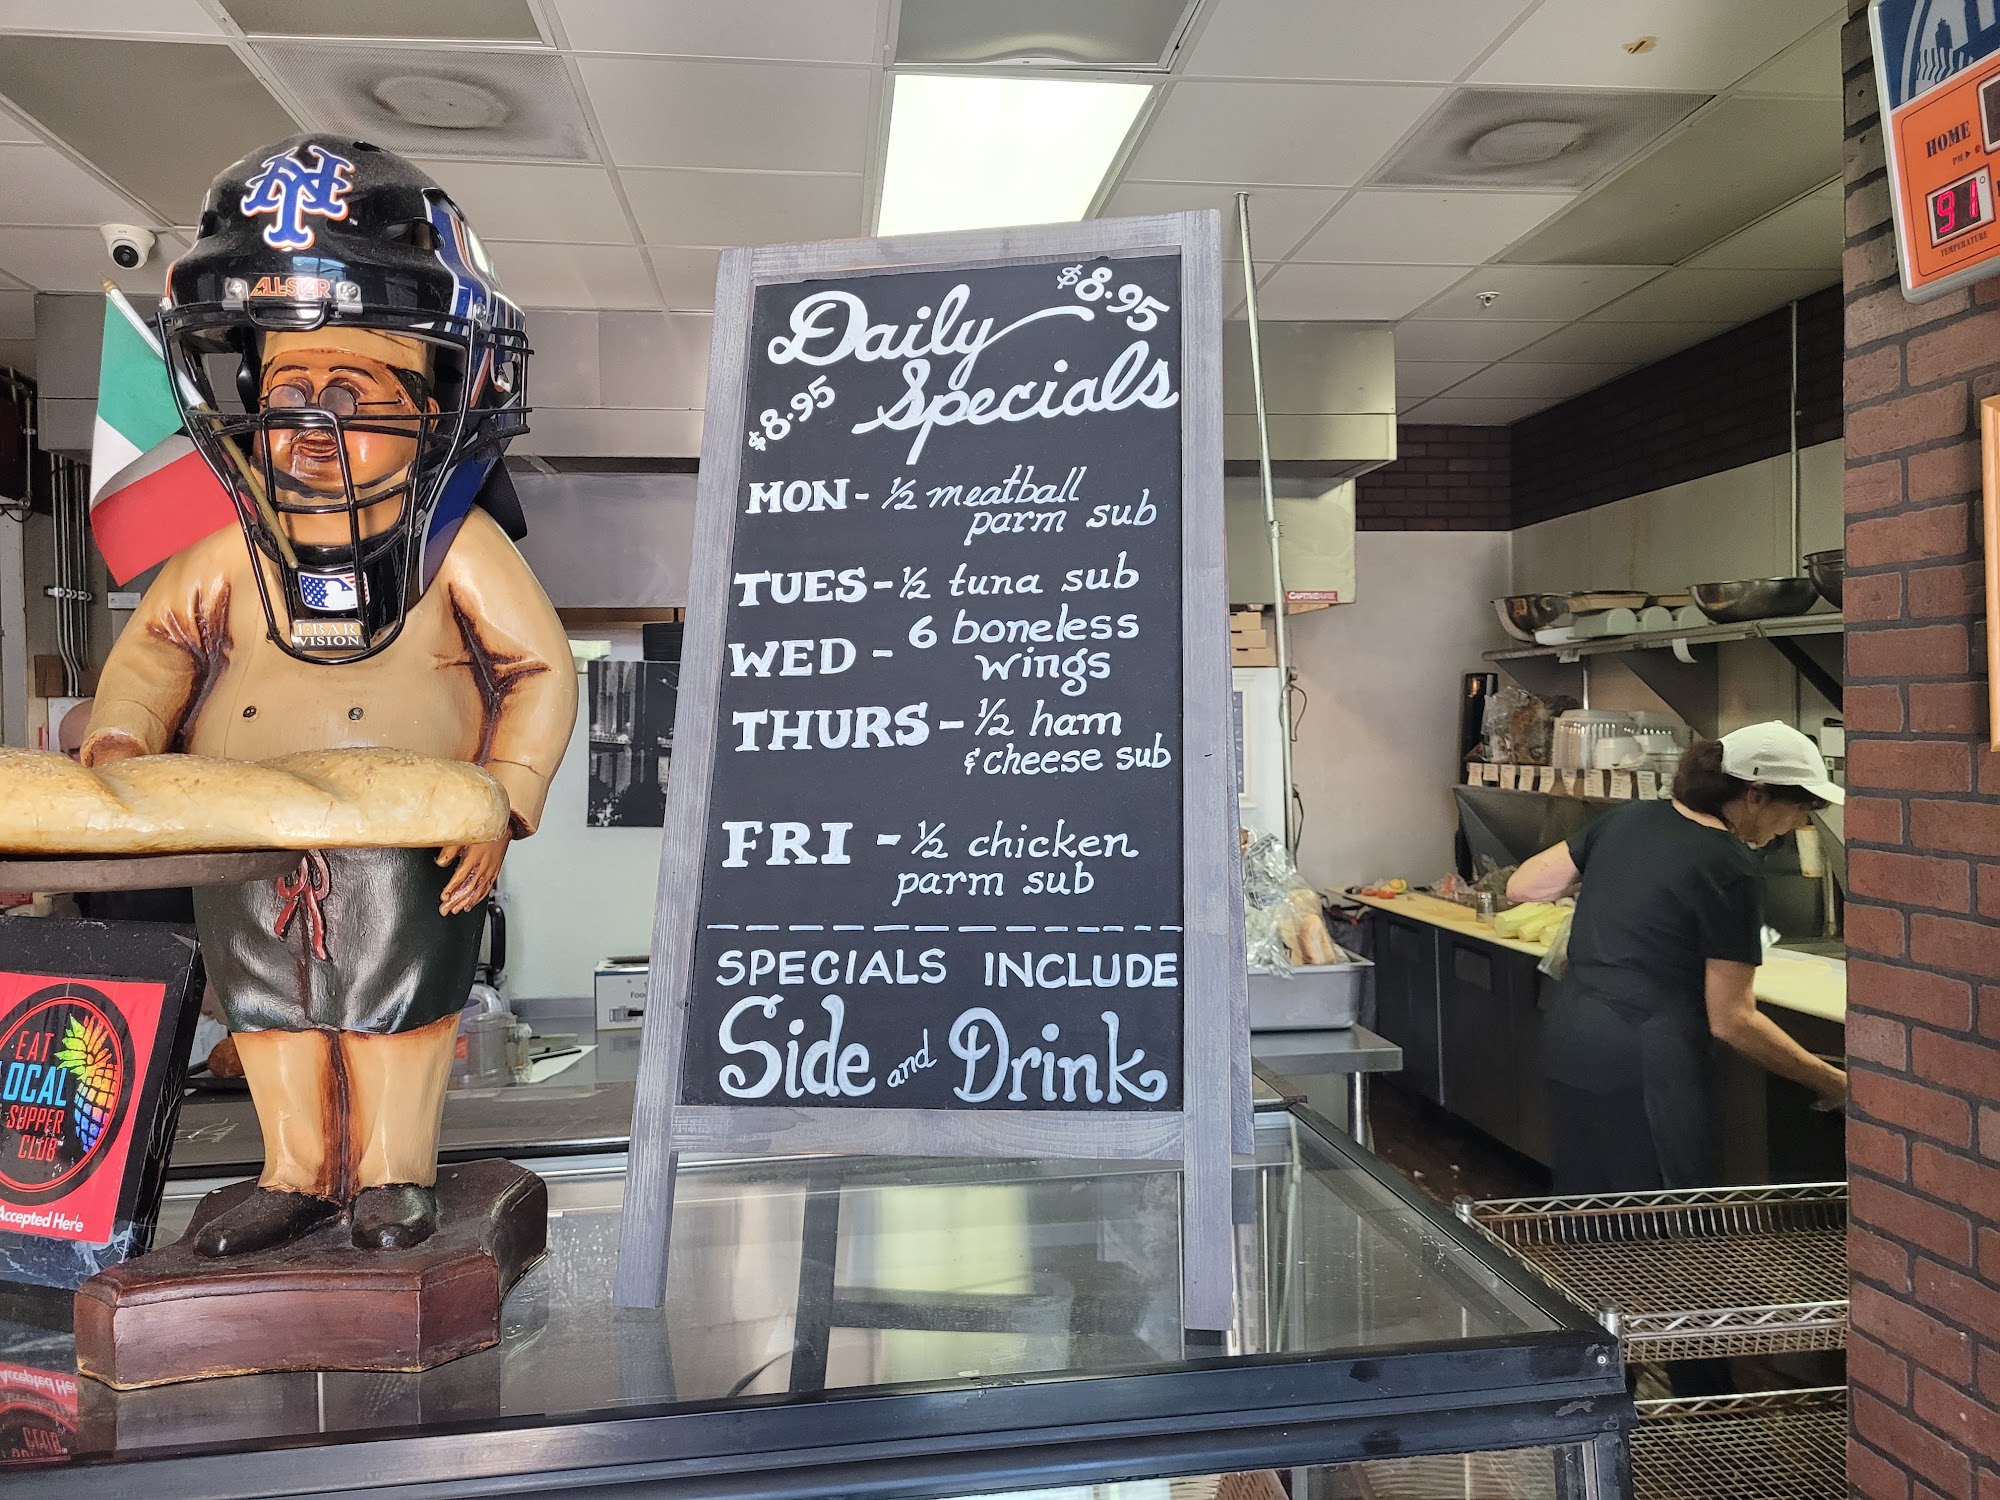 Daily $8.95
$8.95 Specials
MON - ½ meatball
parm sub
TUES - ½ tuna sub
WED - 6 boneless
wings
THURS - ½ ham
& cheese sub
FRI - ½ chicken
parm sub
SPECIALS INCLUDE
Side and Drink
NY
ALL-STAR
I-BAR
VISION
EAT
LOCAL
SUPPER
CLUB
Accepted Here
HOME
PM
91°
TEMPERATURE
CAPTIVEAIRE